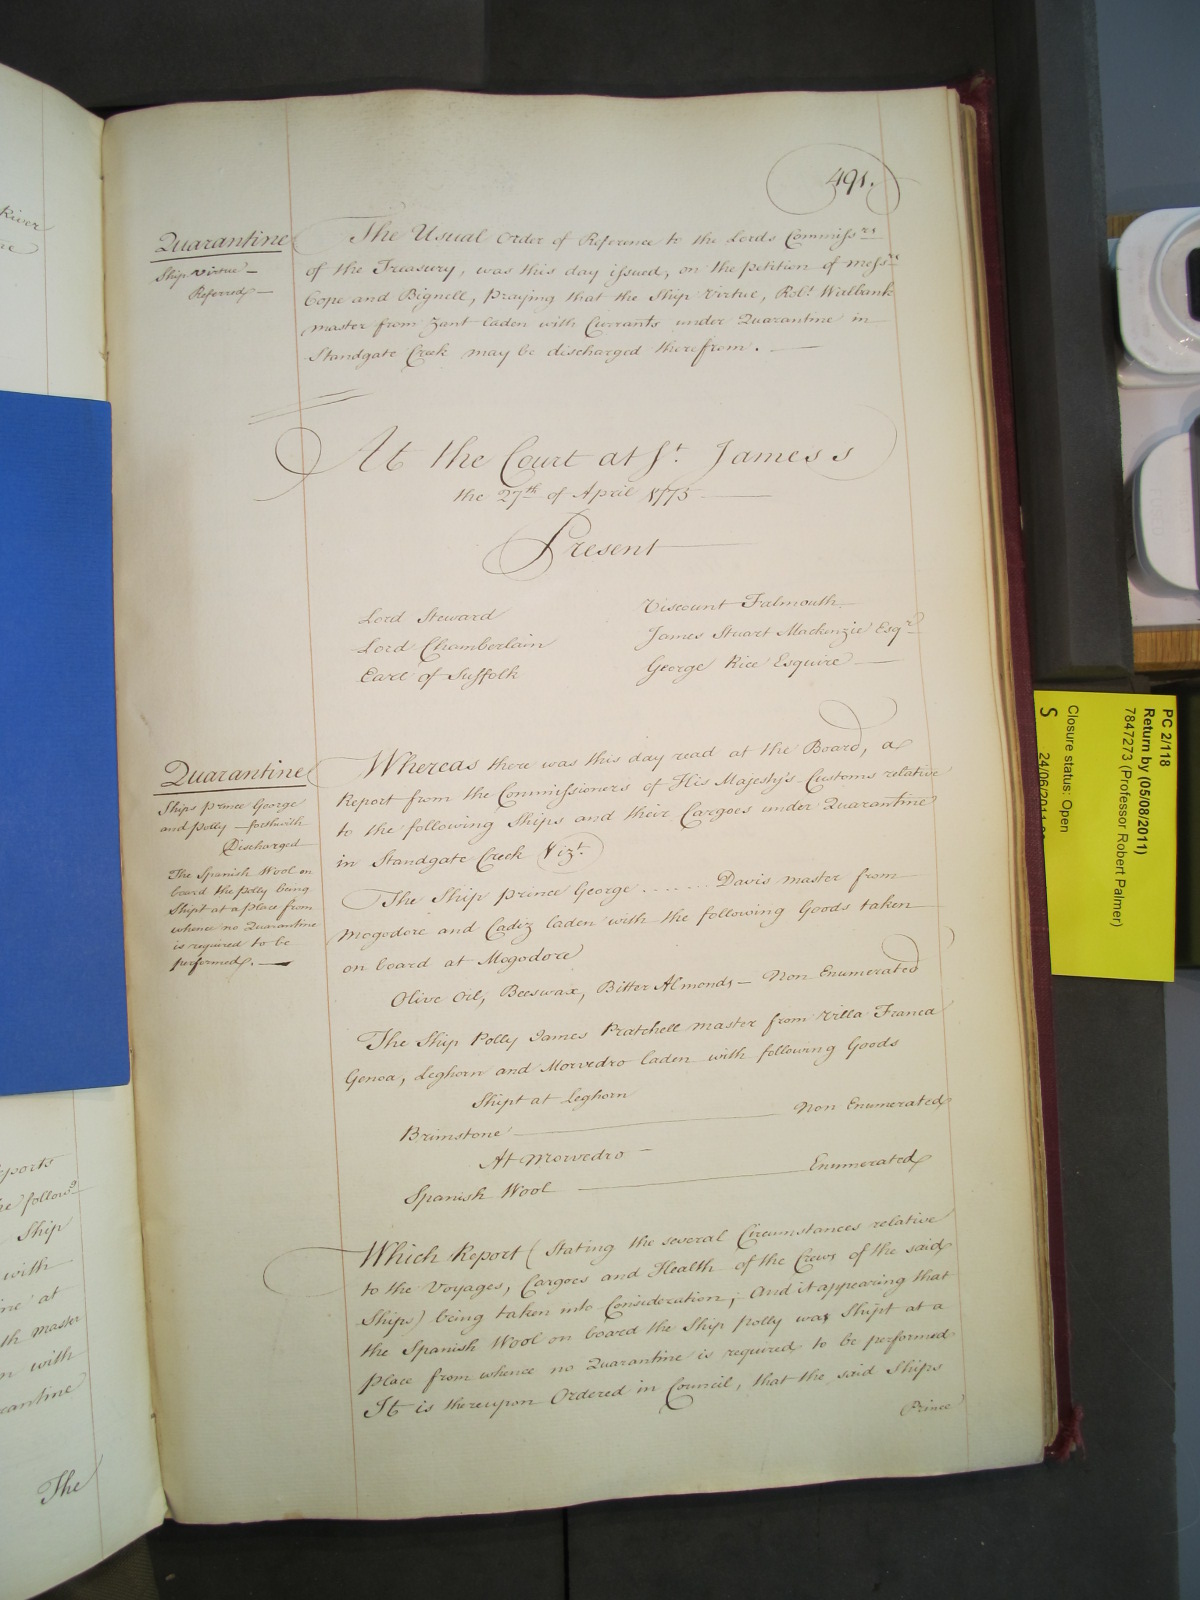 491.
Quarantine
Ship Virtue —
Referred —
The Usual Order of Reference to the Lords Commissrs
of the Treasury, was this day issued, on the petition of Messrs
Cope and Bignell, praying that the Ship Virtue, Robt. Walbank
master from Zant laden with Currants under Quarantine in
Standgate Creek may be discharged therefrom. —
At the Court at St. James's
the 27th of April 1775
Present
Lord Steward
Lord Chamberlain
Earl of Suffolk
Viscount Falmouth
James Stuart Mackenzie Esqr.
George Rice Esquire —
Quarantine
Ships Prince George
and Polly — forthwith
Discharged
The Spanish Wool on
board the Polly being
Shipt at a place from
whence no Quarantine
is required to be
performed. —
Whereas there was this day read at the Board, a
Report from the Commissioners of His Majesty's Customs relative
to the following Ships and their Cargoes under Quarantine
in Standgate Creek Vizt.
The Ship Prince George ....... Davis master from
Mogodore and Cadiz laden with the following Goods taken
on board at Mogodore
Olive Oil, Beeswax, Bitter Almonds — Non Enumerated
The Ship Polly James Pratchell master from Villa Franca
Genoa, Leghorn and Morvedro laden with following Goods
Shipt at Leghorn
Brimstone — Non Enumerated
At Morvedro —
Spanish Wool — Enumerated
Which Report (Stating the several Circumstances relative
to the Voyages, Cargoes and Health of the Crews of the said
Ships) being taken into Consideration; And it appearing that
the Spanish Wool on board the Ship Polly was Shipt at a
place from whence no Quarantine is required to be performed
It is thereupon Ordered in Council, that the said Ships
Prince
River
Reports
the followg
Ship
with
at
master
with
The
PC 2/118
Return by (05/08/2011)
7847273 (Professor Robert Palmer)
Closure status: Open
S
24/06/2011